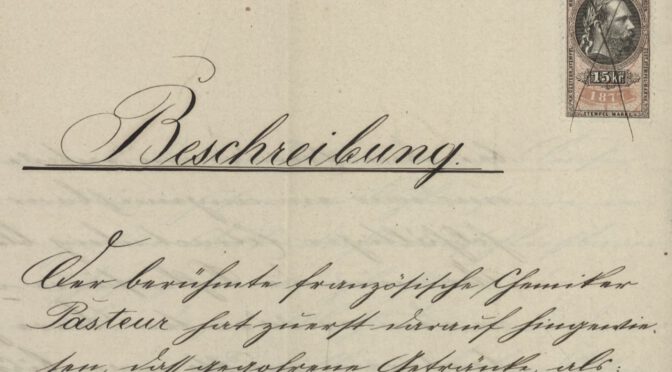 15 kr
187
STEMPEL MARKE
Beschreibung.
Der berühmte französische Chemiker
Pasteur hat zuerst darauf hingewie-
sen, dass gegohrene Getränke, als: